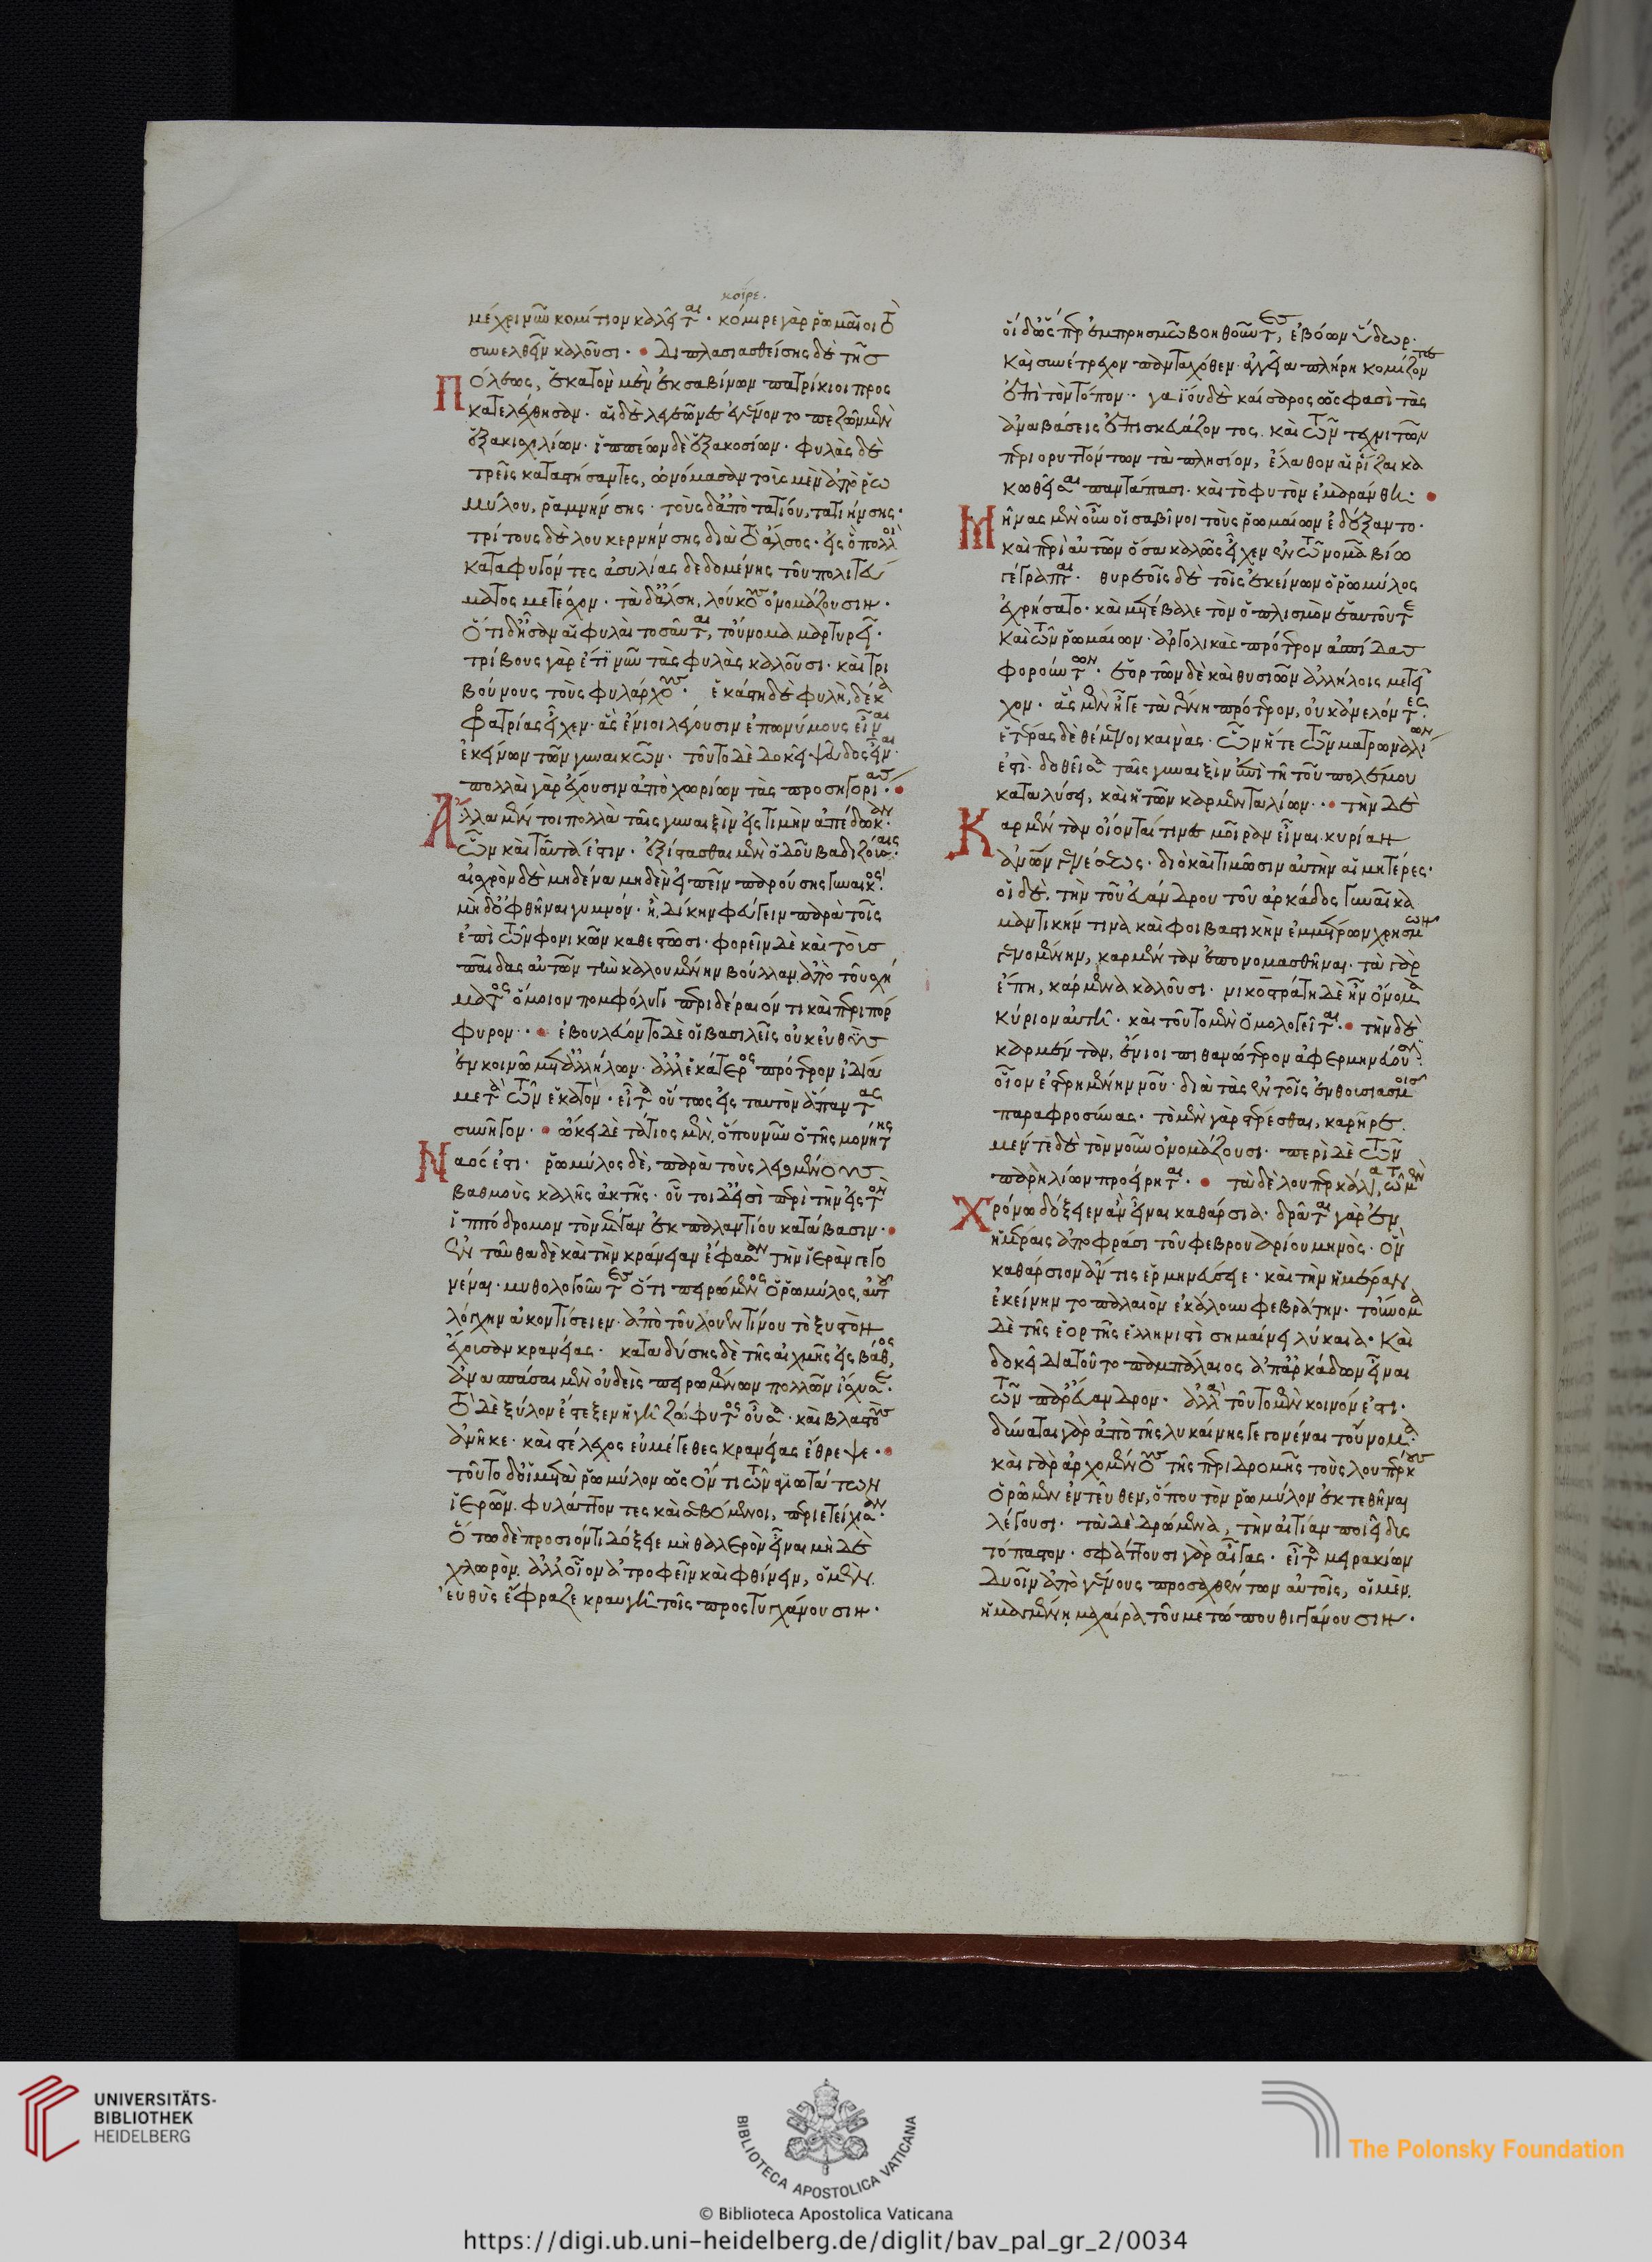 κοίρε.
μέχρι νῦν κομίτιον καλεῖται· κόμιρε γὰρ ῥωμαῖοι τὸ
συνελθεῖν καλοῦσι· Διπλασιασθείσης δὲ τῆς
Πόλεως, ἑκατὸν μὲν ἐκ σαβίνων πατρίκιοι προς
κατελέχθησαν· αἱ δὲ λεγεῶνες ἐγένοντο πεζῶν μὲν
ἑξακισχιλίων· ἱππέων δὲ ἑξακοσίων· φυλὰς δὲ
τρεῖς καταστήσαντες, ὠνόμασαν τοὺς μὲν ἀπὸ ῥω
μύλου, ῥαμνήνσης· τοὺς δ' ἀπὸ τατίου, τατιήνσης·
τρίτους δὲ λουκερνήνσης διὰ τὸ ἄλσος· εἰς ὃ πολλοὶ
καταφυγόντες ἀσυλίας δεδομένης τοῦ πολιτεύ
ματος μετέσχον· τὰ δ' ἄλση, λούκους ὀνομάζουσιν·
Ὅτι δ' ἦσαν αἱ φυλαὶ τοσαῦται, τοὔνομα μαρτυρεῖ·
τρίβους γὰρ ἔτι νῦν τὰς φυλὰς καλοῦσι· καὶ τρι
βούνους τοὺς φυλάρχους· ἑκάστη δὲ φυλὴ, δέκα
φατρίας εἶχεν· ἃς ἔνιοι λέγουσιν ἐπωνύμους εἶναι
ἐκείνων τῶν γυναικῶν· τοῦτο δὲ δοκεῖ ψεῦδος εἶναι·
πολλαὶ γὰρ ἔχουσιν ἀπὸ χωρίων τὰς προσηγορίας·
Ἄλλα μέν τοι πολλὰ ταῖς γυναιξὶν εἰς τιμὴν ἀπέδωκαν·
ὧν καὶ ταῦτά ἐστιν· ἐξίστασθαι μὲν ὁδοῦ βαδιζούσαις·
αἰσχρὸν δὲ μηδένα μηδὲν εἰπεῖν παρούσης γυναικός·
μὴδ' ὀφθῆναι γυμνόν· ἢ δίκην φεύγειν παρὰ τοῖς
ἐπὶ τῶν φονικῶν καθεστῶσι· φορεῖν δὲ καὶ τοὺς
παῖδας αὐτῶν τὴν καλουμένην βούλλαν ἀπὸ τοῦ σχή
ματος ὅμοιον πομφόλυγι περιδέραιόν τι καὶ περιπόρ
φυρον· ἐβουλεύοντο δὲ οἱ βασιλεῖς οὐκ εὐθὺς
ἐν κοινῶ μετ' ἀλλήλων· ἀλλ' ἑκάτερος πρότερον ἰδία
μετὰ τῶν ἑκατόν· εἶτα οὕτως εἰς ταυτὸν ἅπαντας
συνῆγον· ὤκει δὲ τάτιος μὲν, ὅπου νῦν ὁ τῆς μονήτης
Ναός ἐστι· ῥωμύλος δὲ, παρὰ τοὺς λεγομένους
βαθμοὺς καλῆς ἀκτῆς· οὗτοι δ' εἰσὶ περὶ τὴν εἰς τὸν
ἱππόδρομον τὸν μέγαν ἐκ παλαντίου κατάβασιν·
ἐνταῦθα δὲ καὶ τὴν κράνειαν ἔφασαν τὴν ἱερὰν γεγο
νέναι· μυθολογοῦντες ὅτι πειρώμενος ὁ ῥωμύλος, αὐτοῦ
λόγχην ἀκοντίσειεν· ἀπὸ τοῦ λουεντίνου τὸ ξυστὸν
ἔχουσαν κρανείας· καταδύσης δὲ τῆς αἰχμῆς εἰς βάθος,
ἀνασπάσαι μὲν οὐδεὶς πειρωμένων πολλῶν ἴσχυσε·
τὸ δὲ ξύλον ἔστεξεν ἡ γῆ ζώφυτος οὖσα· καὶ βλαστοὺς
ἀνῆκε· καὶ στέλεχος εὐμέγεθες κρανείας ἔθρεψε·
τοῦτο δ' οἱ μετὰ ῥωμύλον ὡς ἕν τι τῶν ἁγιωτάτων
ἱερῶν φυλάττοντες καὶ σεβόμενοι, περιετείχισαν·
ὅτω δὲ προσιόντι δόξειε μὴ θαλερὸν εἶναι μὴδὲ
χλωρὸν ἀλλ' οἷον ἀτροφεῖν καὶ φθίνειν, ὁ μὲν
εὐθὺς ἔφραζε κραυγῆ τοῖς προςτυγχάνουσιν·
οἱ δ' ὥσπερ ἐμπρησμῶ βοηθοῦντες, ἐβόων ὕδωρ·
καὶ συνέτρεχον πανταχόθεν ἀγγεῖα πλήρη κομίζοντες
ἐπὶ τὸν τόπον· γαΐου δὲ καίσαρος ὥς φασι τὰς
ἀναβάσεις ἐπισκευάζοντος καὶ τῶν τεχνιτῶν
περιορυττόντων τὰ πλησίον, ἔλαθον αἱ ῥίζαι κα
κωθεῖσαι παντάπασι· καὶ τὸ φυτὸν ἐμαράνθη·
Μῆνας μὲν οὖν οἱ σαβῖνοι τοὺς ῥωμαίων ἐδέξαντο·
καὶ περὶ αὐτῶν ὅσα καλῶς εἶχεν ἐν τῶ νομᾶ βίω
γέγραπται· θυρεοῖς δὲ τοῖς ἐκείνων ὁ ῥωμύλος
ἐχρήσατο· καὶ μετέβαλε τὸν ὁπλισμὸν ἑαυτοῦ τε
καὶ τῶν ῥωμαίων· ἀργολικὰς πρότερον ἀσπίδας
φορούντων· ἑορτῶν δὲ καὶ θυσιῶν ἀλλήλοις μετεῖ
χον· ἃς μὲν ἦγε τὰ γένη πρότερον, οὐκ ἀνελόντες·
ἑτέρας δὲ θέμενοι καινὰς· ὧν ἥ τε τῶν ματρωναλίων
ἐστὶ· δοθεῖσα ταῖς γυναιξὶν ἐπὶ τῆ τοῦ πολέμου
καταλύσει, καὶ ἡ τῶν καρμενταλίων· τὴν δὲ
Καρμένταν οἴονταί τινες μοῖραν εἶναι κυρίαν
ἀνθρώπων γενέσεως· διὸ καὶ τιμῶσιν αὐτὴν αἱ μητέρες·
οἱ δὲ, τὴν τοῦ εὐάνδρου τοῦ ἀρκάδος γυναῖκα
μαντικήν τινα καὶ φοιβαστικὴν ἐμμέτρων χρησμῶν
γενομένην, καρμένταν ἐπονομασθῆναι· τὰ γὰρ
ἔπη, κάρμενα καλοῦσι· νικοστράτη δὲ ἦν ὄνομα
κύριον αὐτῆ· καὶ τοῦτο μὲν ὁμολογεῖται· τὴν δὲ
καρμένταν, ἔνιοι πιθανώτερον ἀφερμηνεύουσιν·
οἷον ἐστερημένην νοῦ· διὰ τὰς ἐν τοῖς ἐνθουσιασμοῖς
παραφροσύνας· τὸ μὲν γὰρ στέρεσθαι, καρῆρε·
μέντε δὲ τὸν νοῦν ὀνομάζουσι· περὶ δὲ τῶν
παρηλίων προείρηται· τὰ δὲ λουπερκάλια, τῶ μὲν
Χρόνω δόξειεν ἂν εἶναι καθάρσια· δρᾶται γὰρ ἐν
ἡμέραις ἀποφράσι τοῦ φεβρουαρίου μηνὸς· ὃν
καθάρσιον ἄν τις ἑρμηνεύσειε· καὶ τὴν ἡμέραν
ἐκείνην τὸ παλαιὸν ἐκάλουν φεβράτην· τοὔνομα
δὲ τῆς ἑορτῆς ἑλληνιστὶ σημαίνει λύκαια· καὶ
δοκεῖ διὰ τοῦτο παμπάλαιος ἀπ' ἀρκάδων εἶναι
τῶν παρ' εὔανδρον· ἀλλὰ τοῦτο μὲν κοινόν ἐστι·
δύναται γὰρ ἀπὸ τῆς λυκαίνης γεγονέναι τοὔνομα·
καὶ γὰρ ἀρχομένους τῆς περιδρομῆς τοὺς λουπέρκους
ὁρῶμεν ἐντεῦθεν, ὅπου τὸν ῥωμύλον ἐκτεθῆναι
λέγουσι· τὰ δὲ δρώμενα, τὴν αἰτίαν ποιεῖ δυς
τόπαστον· σφάττουσι γὰρ αἶγας· εἶτα μειρακίων
δυοῖν ἀπὸ γένους προσαχθέντων αὐτοῖς, οἱ μὲν
ἡμαγμένη μαχαίρα τοῦ μετώπου θιγγάνουσιν·
UNIVERSITÄTS-
BIBLIOTHEK
HEIDELBERG
BIBLIOTECA APOSTOLICA VATICANA
The Polonsky Foundation
© Biblioteca Apostolica Vaticana
https://digi.ub.uni-heidelberg.de/diglit/bav_pal_gr_2/0034